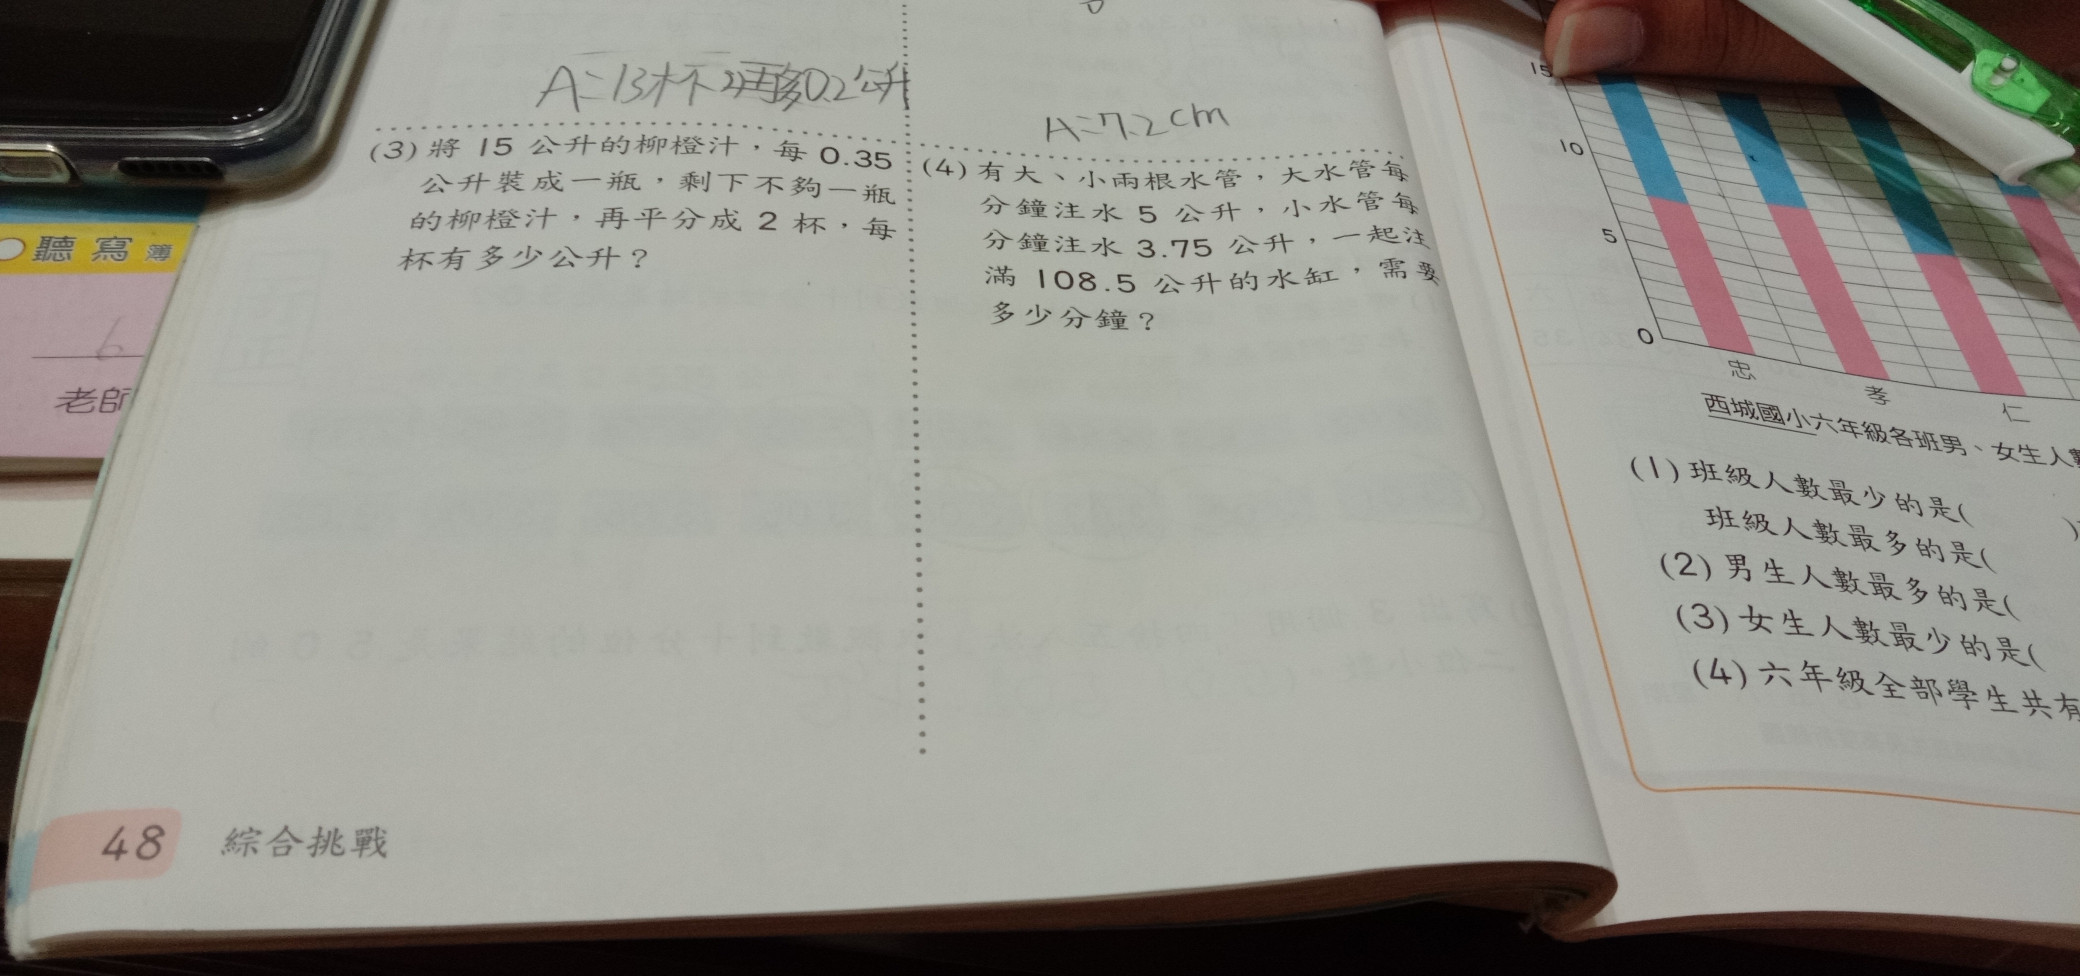 A=13杯 再多0.2公升
(3)將 15 公升的柳橙汁，每 0.35
公升裝成一瓶，剩下不夠一瓶
的柳橙汁，再平分成 2 杯，每
杯有多少公升？
A=7.2cm
(4)有大、小兩根水管，大水管每
分鐘注水 5 公升，小水管每
分鐘注水 3.75 公升，一起注
滿 108.5 公升的水缸，需要
多少分鐘？
聽寫簿
6
老師
48 綜合挑戰
15
10
5
0
忠
孝
仁
西城國小六年級各班男、女生人數
(1)班級人數最少的是( )
班級人數最多的是(
(2)男生人數最多的是(
(3)女生人數最少的是(
(4)六年級全部學生共有